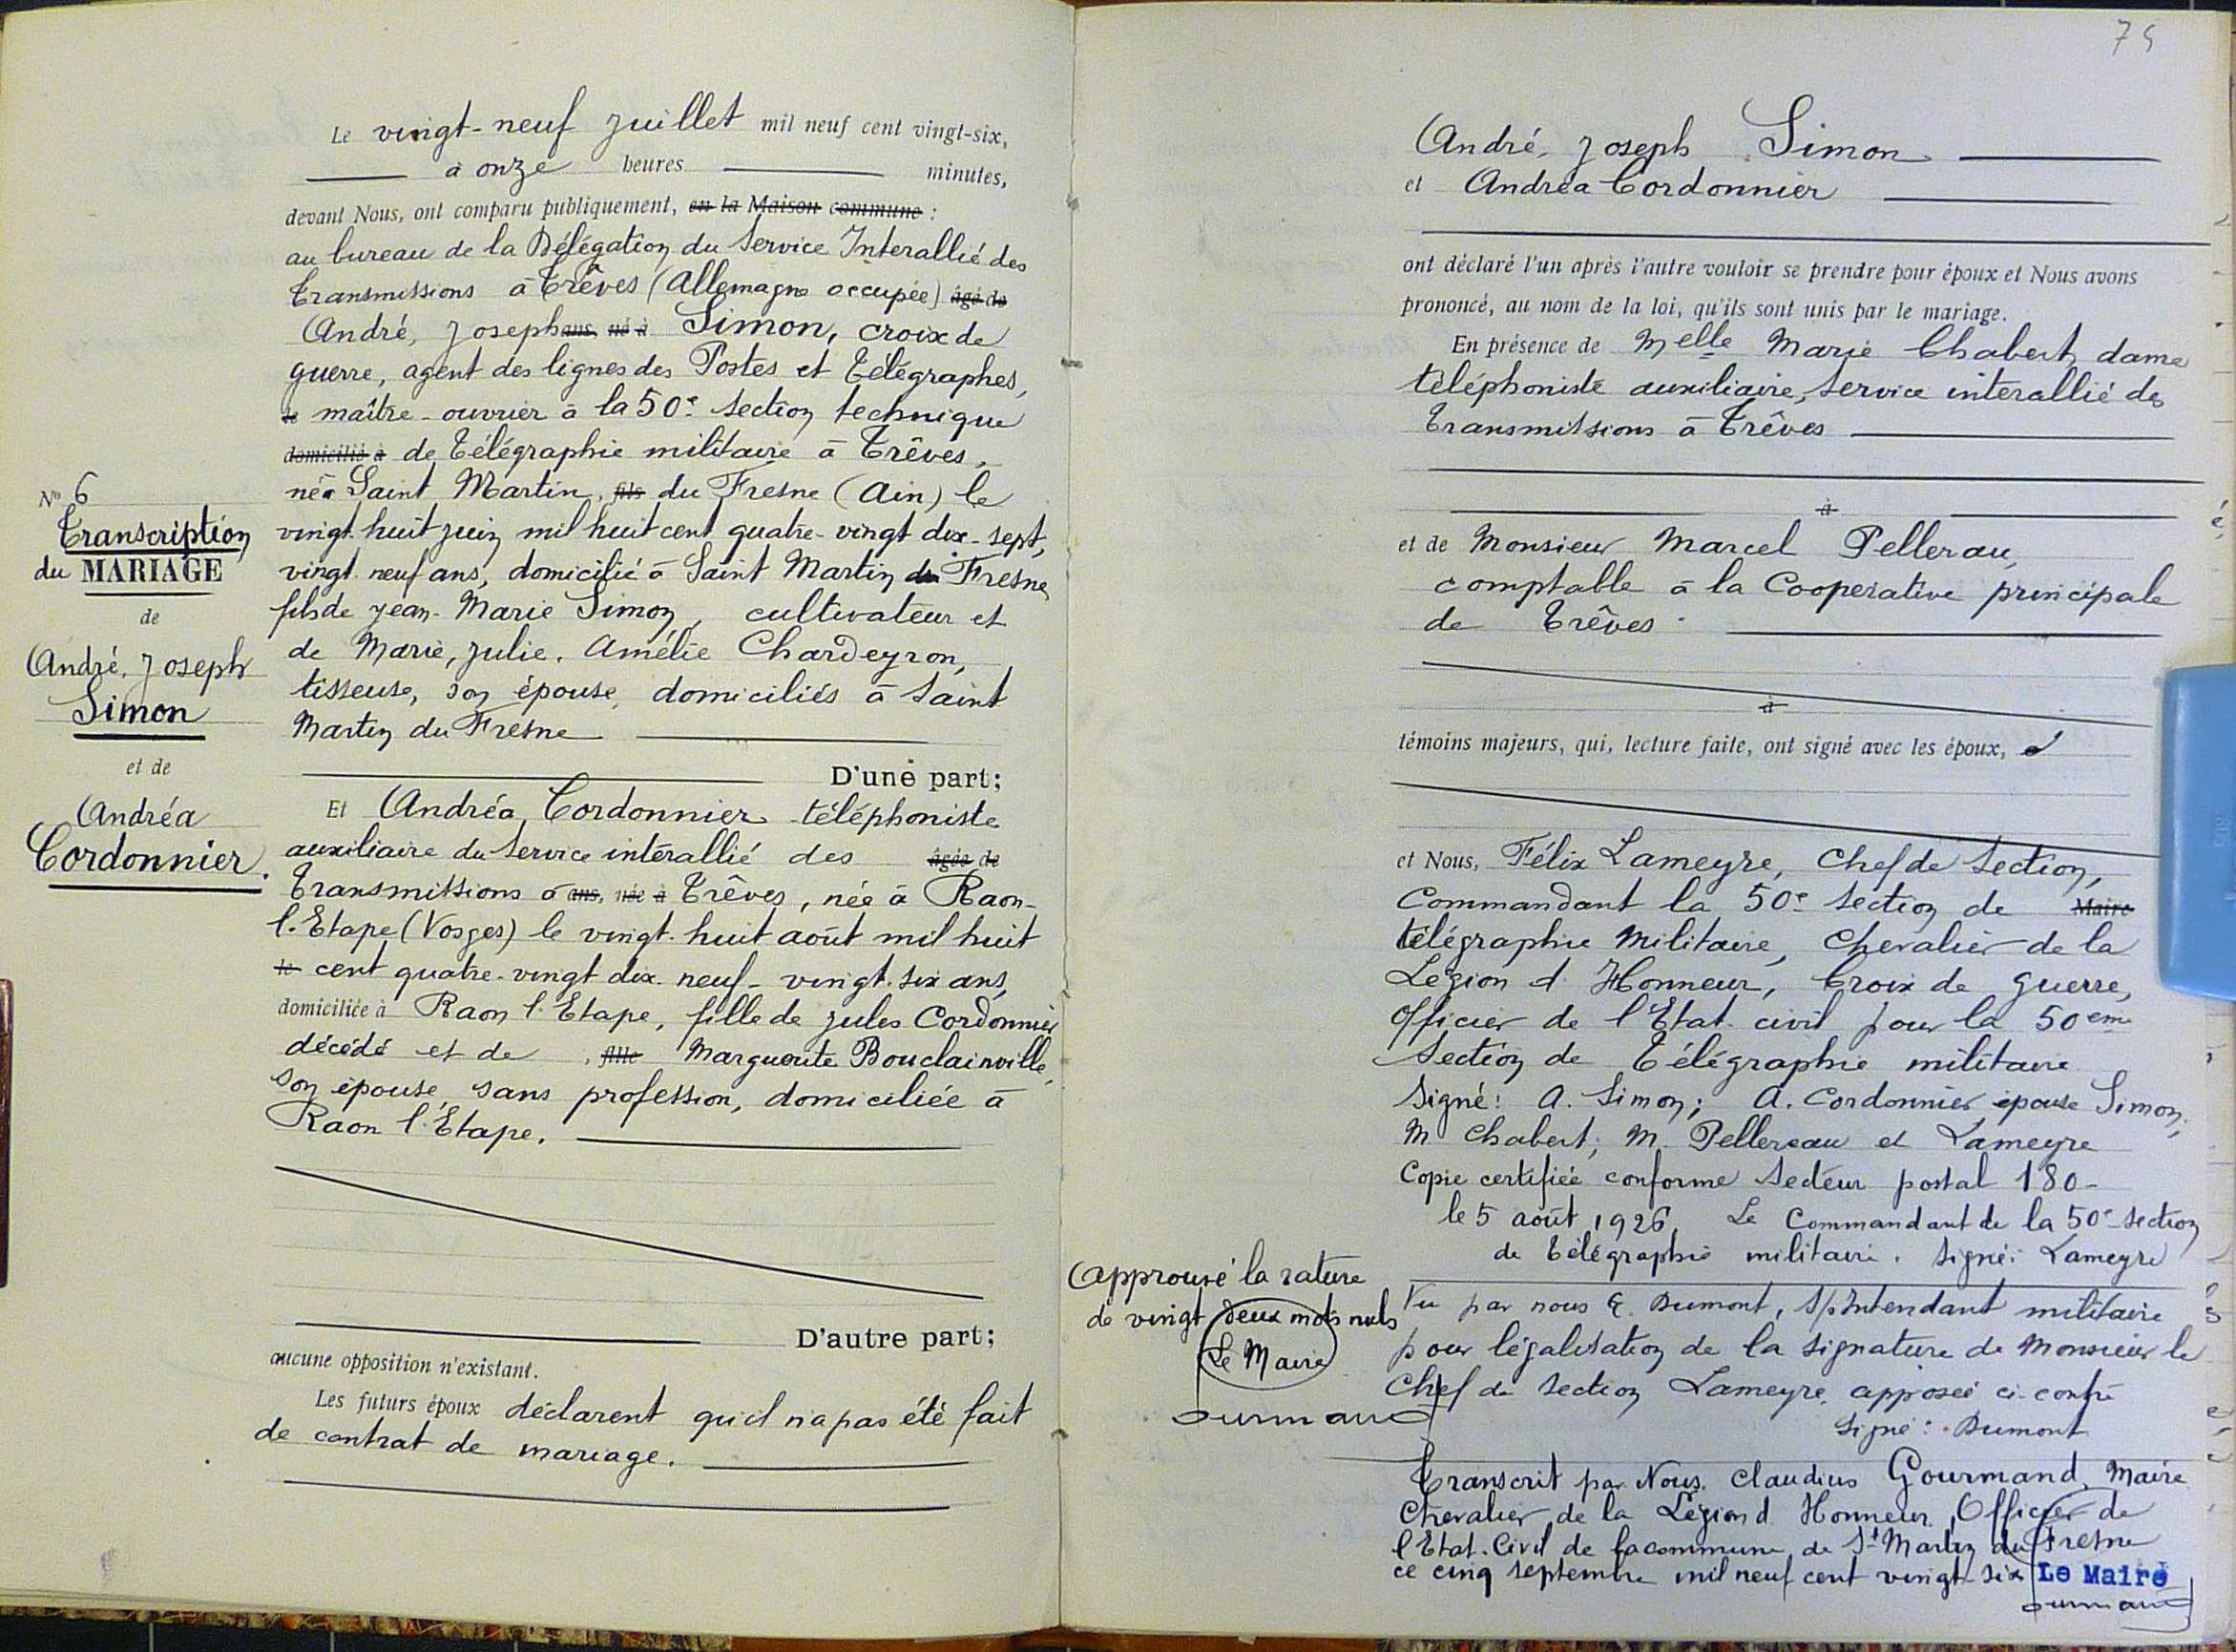 Le vingt-neuf Juillet mil neuf cent vingt-six,
à onze heures minutes,
devant Nous, ont comparu publiquement, en la Maison commune :
au bureau de la Délégation du Service Interallié des
Transmissions à Trêves (Allemagne occupée) âgé de
André, Joseph ans, né à Simon, croix de
guerre, agent des lignes des Postes et Télégraphes,
le maître-ouvrier à la 50e section technique
domicilié à de Télégraphie militaire à Trêves,
né à Saint Martin, fils du Fresne (Ain) le
vingt huit juin mil huit cent quatre-vingt dix-sept,
vingt neuf ans, domicilié à Saint Martin du Fresne
fils de Jean-Marie Simon, cultivateur et
de Marie, Julie, Amélie Chardeyron,
tisseuse, son épouse, domiciliés à Saint
Martin du Fresne
D'une part;
Et Andréa, Cordonnier téléphoniste
auxiliaire du Service interallié des âgée de
Transmissions à ans, née à Trêves, née à Raon-
l'Etape (Vosges) le vingt-huit août mil huit
le cent quatre-vingt dix-neuf-vingt-six ans,
domiciliée à Raon l'Etape, fille de Jules Cordonnier
décédé et de , fille Marguerite Bouclainville,
son épouse, sans profession, domiciliée à
Raon l'Etape.
D'autre part;
aucune opposition n'existant.
Les futurs époux déclarent qu'il n'a pas été fait
de contrat de mariage.
N° 6
Transcription
du MARIAGE
de
André, Joseph
Simon
et de
Andréa
Cordonnier.
75
André, Joseph Simon
et Andréa Cordonnier
ont déclaré l'un après l'autre vouloir se prendre pour époux et Nous avons
prononcé, au nom de la loi, qu'ils sont unis par le mariage.
En présence de Melle Marie Chabert, dame
téléphoniste auxiliaire, Service interallié des
Transmissions à Trêves
à
et de Monsieur Marcel Pellerau,
comptable à la Coopérative principale
de Trêves
à
témoins majeurs, qui, lecture faite, ont signé avec les époux,
et Nous, Félix Lameyre, Chef de Section,
Commandant la 50e Section de Maire
télégraphie Militaire, Chevalier de la
Légion d'Honneur, Croix de guerre,
Officier de l'Etat-civil pour la 50eme
Section de Télégraphie militaire
Signé: A. Simon; A. Cordonnier, épouse Simon;
M Chabert; M. Pellereau et Lameyre
Copie certifiée conforme Secteur postal 180-
le 5 août 1926. Le Commandant de la 50e Section
de Télégraphie militaire. Signé: Lameyre
Vu par nous E. Dumont, S/Intendant militaire
pour légalisation de la signature de Monsieur le
Chef de Section Lameyre, apposée ci-contre
Signé: Dumont
Approuvé la rature
de vingt deux mots nuls
Le Maire
Gourmand
Transcrit par Nous, Claudius Gourmand, Maire
Chevalier de la Légion d'Honneur, Officier de
l'Etat-Civil de la commune de St Martin du Fresne
ce cinq septembre mil neuf cent vingt-six Le Maire
Gourmand